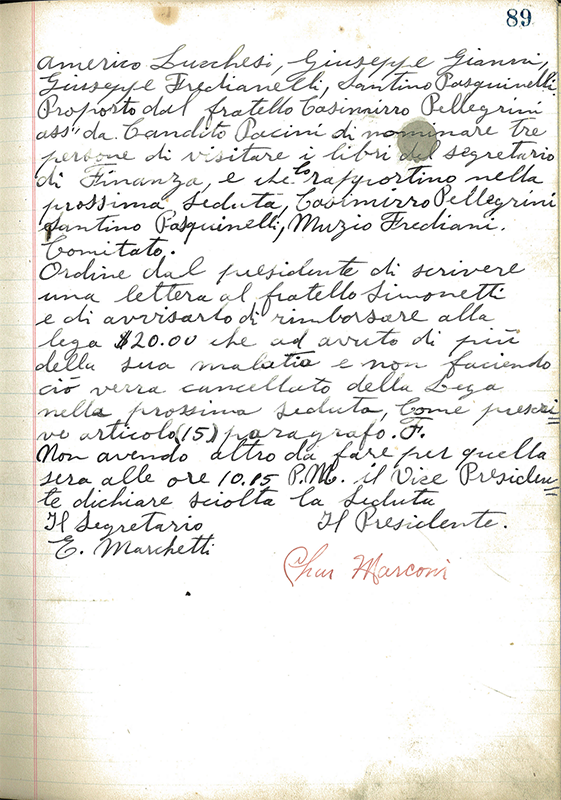 89
Americo Lucchesi, Giuseppe Gianni,
Giuseppe Fredianelli, Santino Pasquinelli.
Proporto dal fratello Casimirro Pellegrini
ass' da Candito Pacini di nominare tre
persone di visitare i libri del segretario
di Finanza, e che lo rapportino nella
prossima Seduta, Casimirro Pellegrini
Santino Pasquinelli, Muzio Frediani.
Comitato.
Ordine dal presidente di scrivere
una lettera al fratello Simonetti
e di avvisarlo di rimborsare alla
lega $20.00 che ad avuto di più
della sua malatia e non faciendo
ciò verra cancellato della Lega
nella prossima Seduta, Come prescri=
ve articolo (15) paragrafo. F.
Non avendo altro da fare per quella
sera alle ore 10.15 P.M. il Vice Presiden=
te dichiare sciolta la Seduta
Il Segretario Il Presidente.
E. Marchetti
Chas Marconi